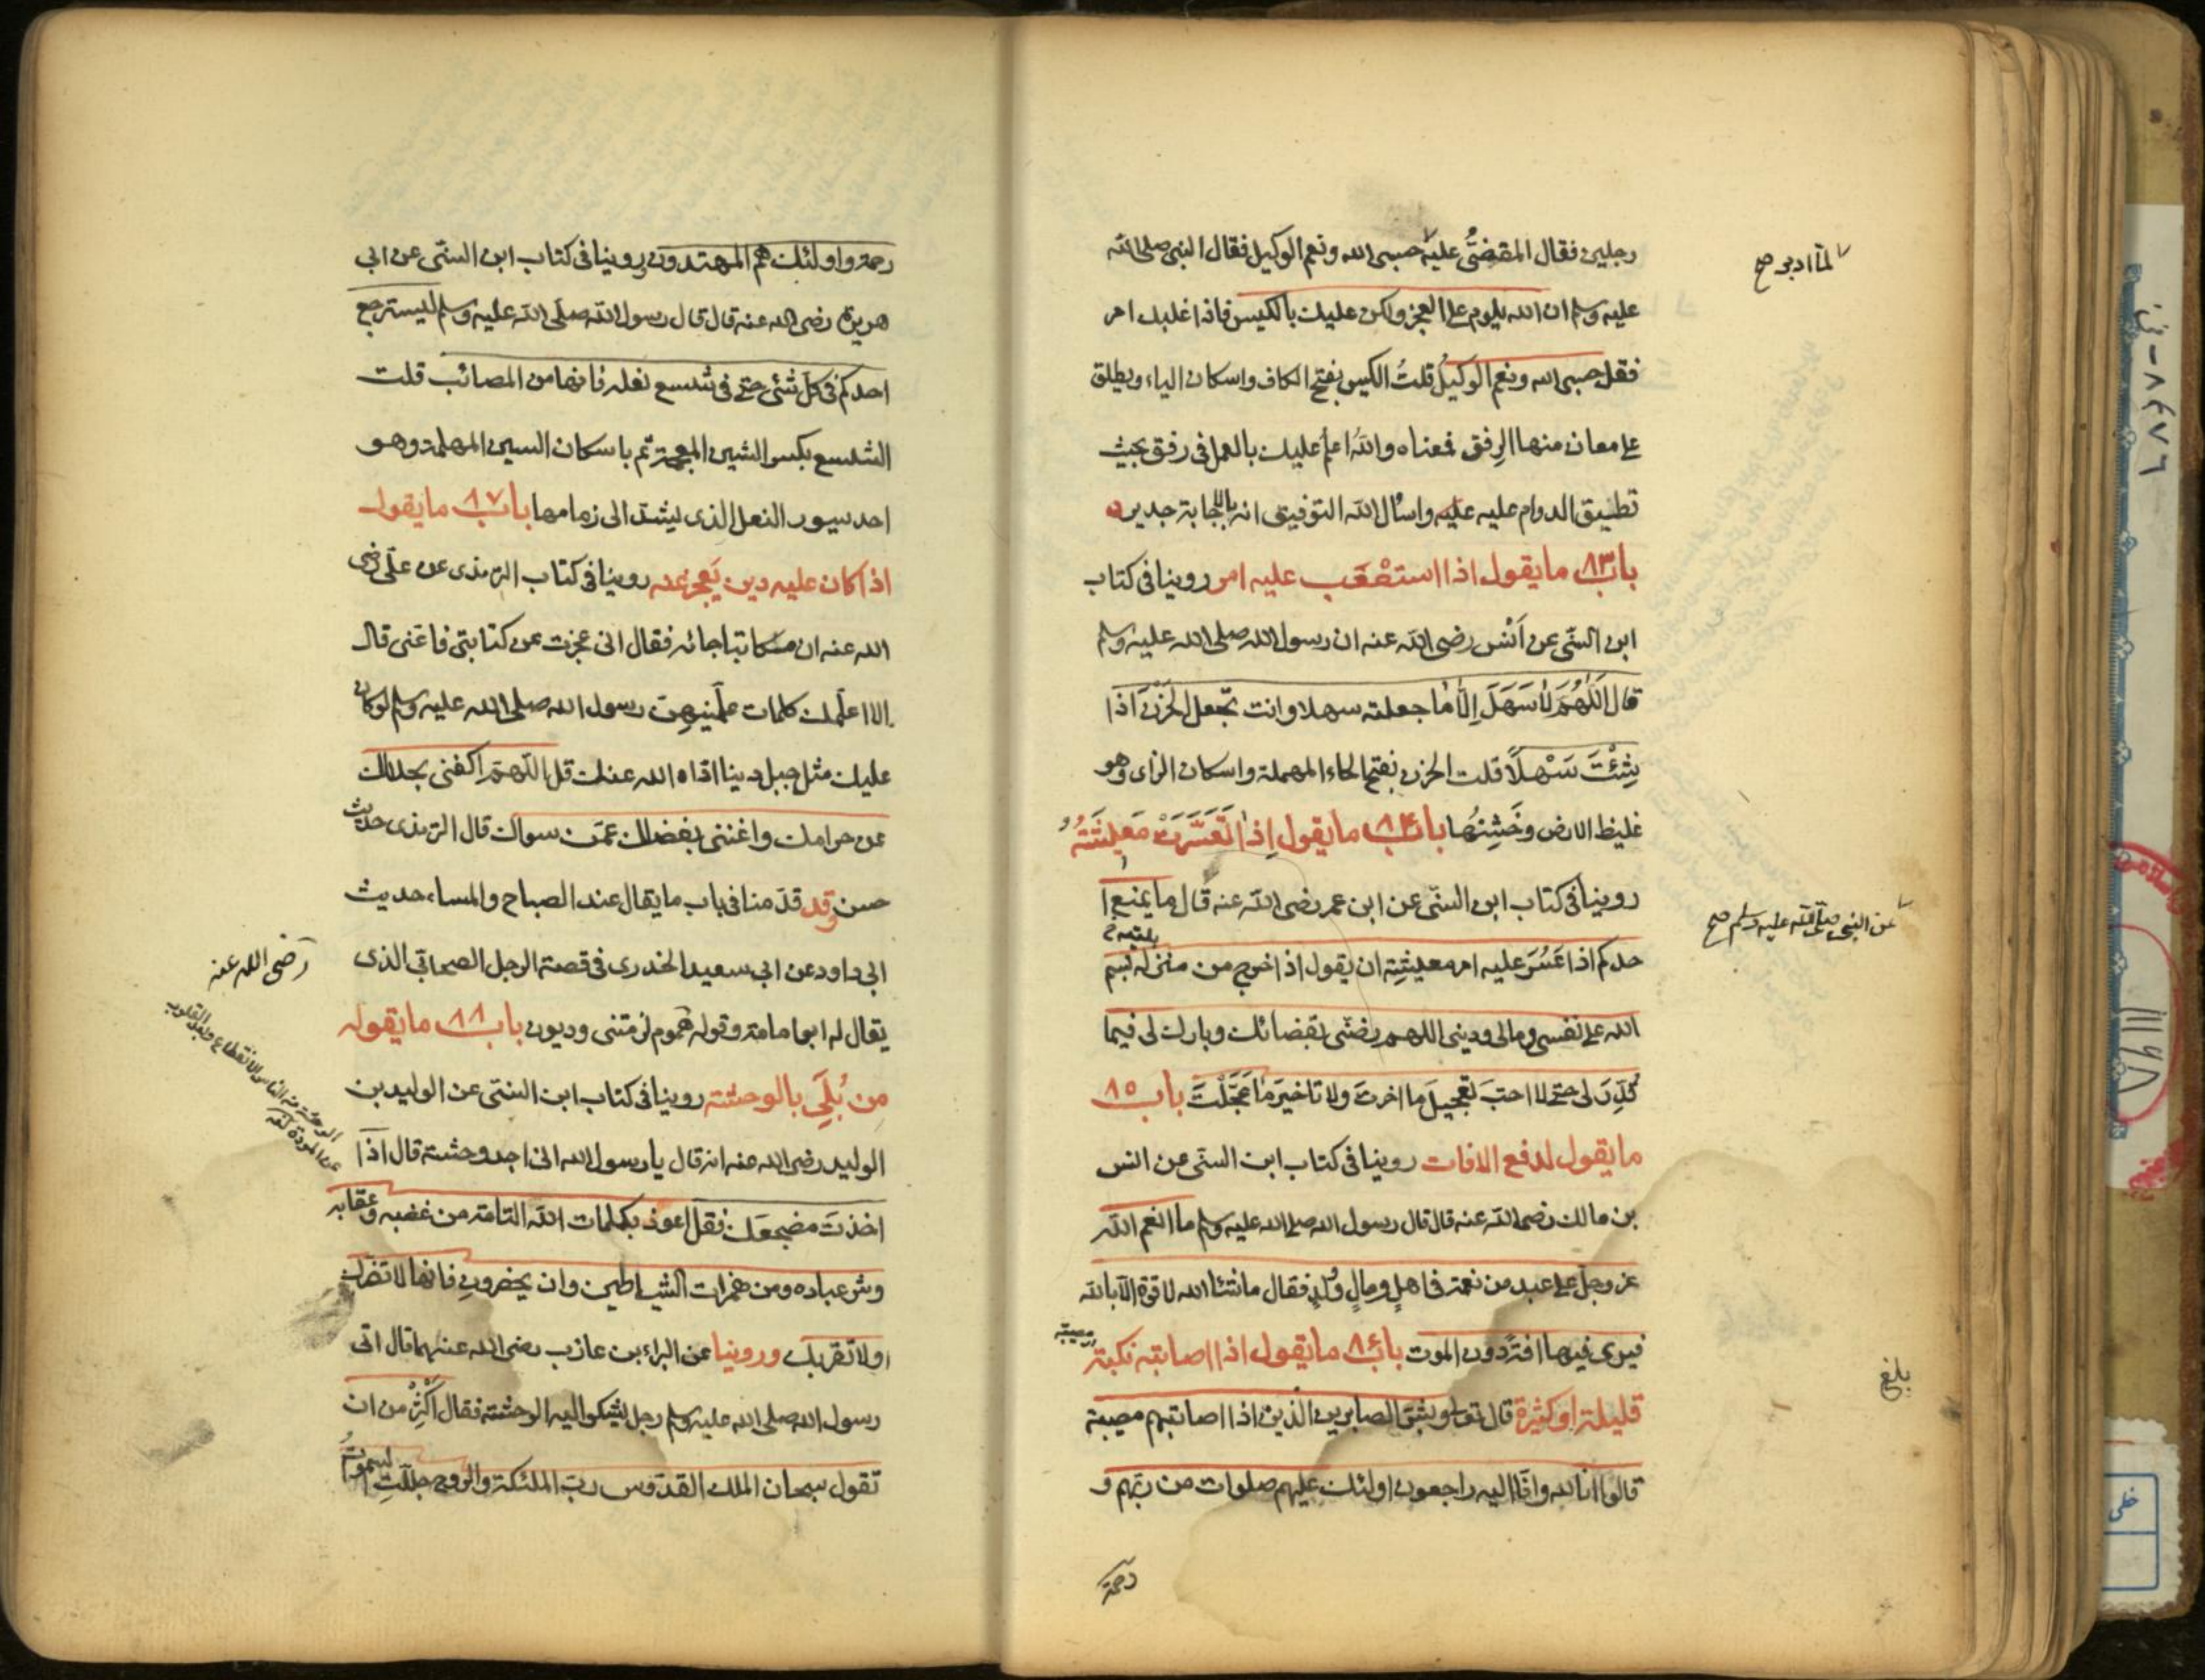 رجلين فقال المقضىُّ عليه حسبى الله ونعم الوكيل فقال النبى صلى الله
لمّا ادبر صح
عليه وسلم ان الله يلوم على العجز ولكن عليك بالكيس فاذا غلبك امر
فقل حسبى الله ونعم الوكيل قلتُ الكيس بفتح الكاف واسكان الياء ويطلق
على معان منها الرفق فمعناه والله اعلم عليك بالعمل فى رفق بحيث
تطيق الدوام عليه عليه واسأل الله التوفيق انه بالاجابة جدير
باب ٨٣ ما يقول اذا استصْعَب عليه امر روينا فى كتاب
ابن السنّى عن أنس رضى الله عنه ان رسول الله صلى الله عليه وسلم
قال اَللّٰهُمَّ لاٰ سَهَلَ اِلّاٰ ماٰ جعلته سهلا وانت تجعل الحَزْنَ اذا
شِئْتَ سَهْلًا قلت الحزن بفتح الحاء المهملة واسكان الزاى وهو
غليظ الارض وخَشِنُها باب ٨٤ ما يقول اِذا تَعَسَّرَتْ مَعيشَتُهُ
روينا فى كتاب ابن السنّى عن ابن عمر رضى الله عنه قال ما يمنع ا
عن النبى صلى الله عليه وسلم صح
حدكم اذا عَسُرَ عليه امر معيشتِه ان يقول اذا خرج من منزله بسم
الله على نفسى ومالى ودينى اللهم رضّنى بقضائك وبارك لى فيما
قُدِّرَ لى حتى لا احبَ تعجيلَ ما اخرتَ ولا تاخيرَ ما عَجَّلْتَ باب ٨٥
ما يقول لدفع الافات روينا فى كتاب ابن السنّى عن انس
بن مالك رضى الله عنه قال قال رسول الله صلى الله عليه وسلم ما انعم الله
عز وجلّ على عبد من نعمة فى اهلٍ ومالٍ وولدٍ فقال ما شاء الله لا قوة الا بالله
فيرى فيها افة دون الموت باب ٨٦ ما يقول اذا اصابته نكبة
بلغ
قليلة او كثيرة قال تعالى وبشّر الصابرين الذين اذا اصابتهم مصيبة
قالوا انا لله وانّا اليه راجعون اولئك عليهم صلوات من ربّهم و
رحمة
رحمة واولئك هم المهتدون روينا فى كتاب ابن السنّى عن ابى
هريرة رضى الله عنه قال قال رسول الله صلّى الله عليه وسلم ليسترجع
احدكم فى كلّ شئ حتى فى شسع نعله فانها من المصائب قلت
الشسع بكسر الشين المعجمة ثم باسكان السين المهملة وهو
احد سيور النعل الذى يشد الى زمامها باب ٨٧ ما يقول
اذا كان عليه دين يَعجِزعنه روينا فى كتاب الترمذى عن علىّ رضى
الله عنه ان مكاتبا جائه فقال انى عجزت عن كتابتى فاعنى قال
الا اعلّمك كلمات علّمنيهن رسول الله صلى الله عليه وسلم لو كان
عليك مثل جبل دينا اداه الله عنك قل اللّهمّ اكفنى بحلالك
عن حرامك واغننى بفضلك عمّن سواك قال الترمذى حديث
حسن وقد قدّمنا فى باب ما يقال عند الصباح والمساء حديث
ابى داود عن ابى سعيد الخدرى فى قصة الرجل الصحابى الذى
رضى الله عنه
يقال له ابو امامة وقوله هموم لزمتنى وديون باب ٨٨ ما يقوله
من بُلِىَ بالوحشة روينا فى كتاب ابن السنّى عن الوليد بن
الوحشة من الناس الانقطاع وبعد القلوب
عن المودة
الوليد رضى الله عنه انه قال يا رسول الله انى اجد وحشة قال اذا
اخذتَ مضجعك فقل اعوذ بكلمات الله التامة من غضبه وعقابه
وشر عباده ومن همزات الشياطين وان يحضرونِ فانها لا تضرك
او لا تقربك وروينا عن البراء بن عازب رضى الله عنهما قال اتى
رسول الله صلى الله عليه وسلم رجل يشكو اليه الوحشة فقال اكْثِرْ من ان
تقول سبحان الملك القدّوس ربّ الملئكة والروح جلّلتِ السموٰت